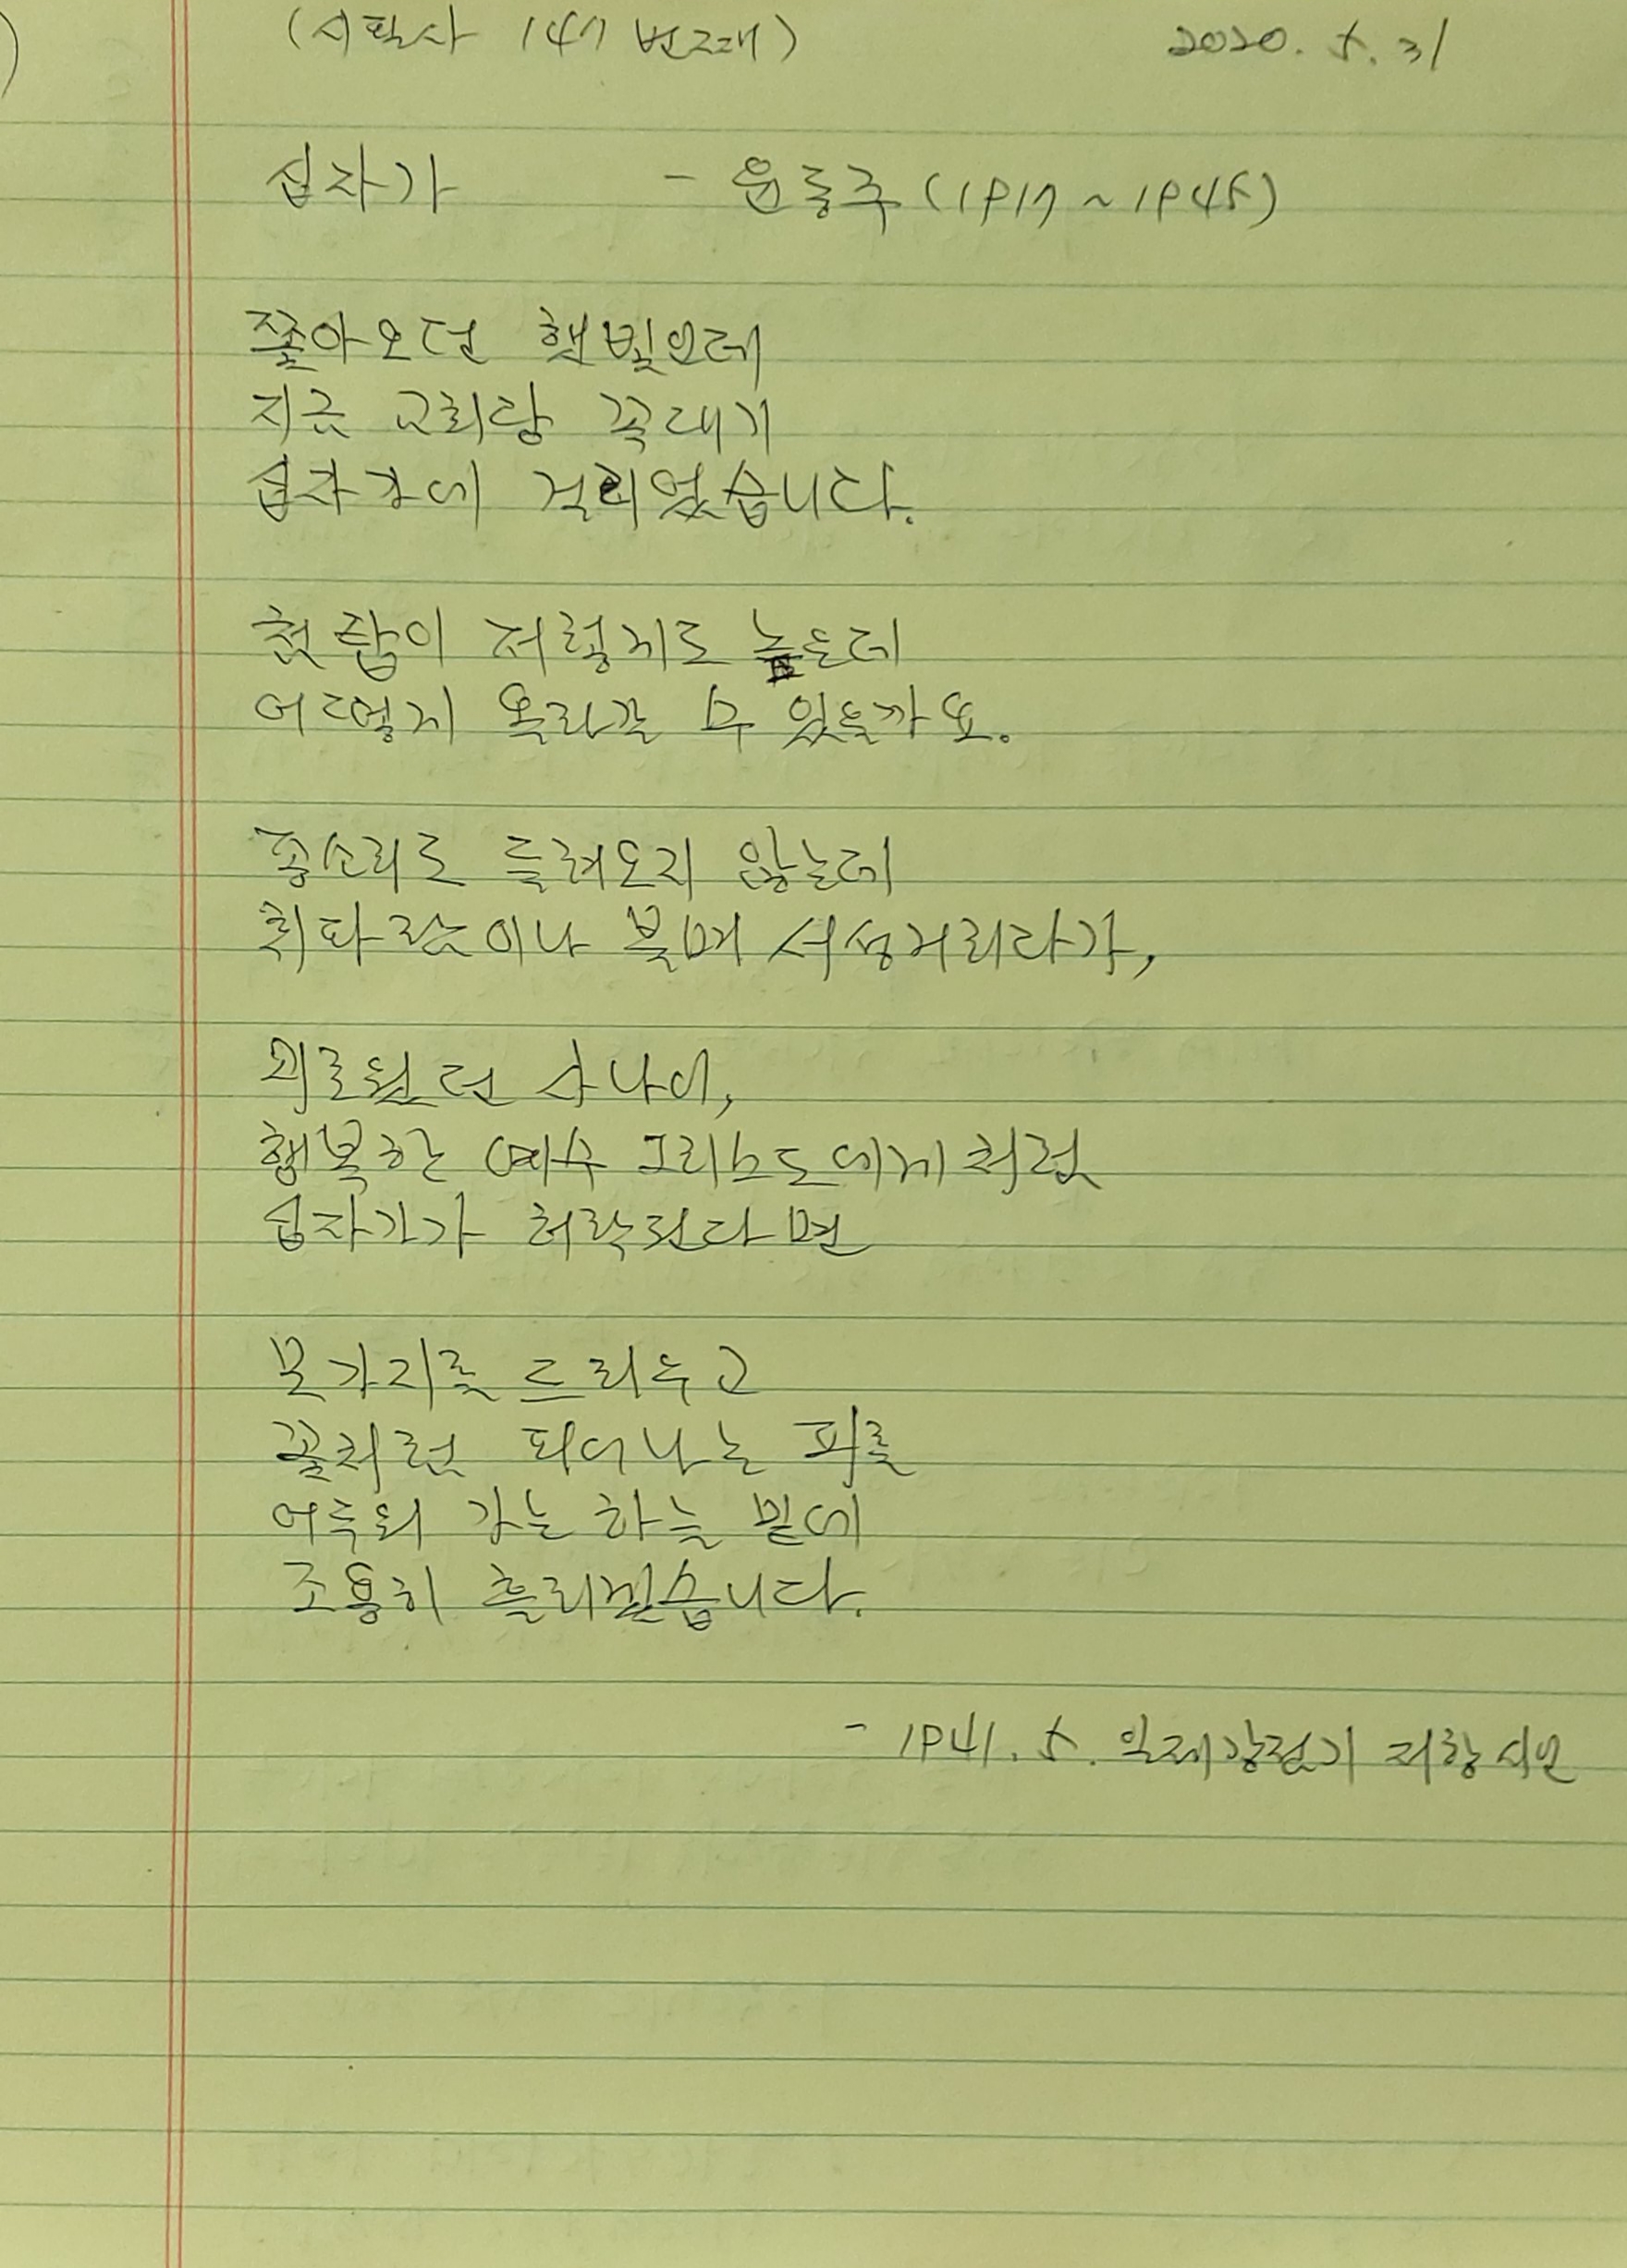 (시필사 147 번째) 2020. 5. 31
십자가 - 윤동주 (1917 ~ 1945)
쫓아오던 햇빛인데
지금 교회당 꼭대기
십자가에 걸리었습니다.
첨탑이 저렇게도 높은데
어떻게 올라갈 수 있을까요.
종소리도 들려오지 않는데
휘파람이나 불며 서성거리다가,
괴로웠던 사나이,
행복한 예수 그리스도에게처럼
십자가가 허락된다면
모가지를 드리우고
꽃처럼 피어나는 피를
어두워 가는 하늘 밑에
조용히 흘리겠습니다.
- 1941. 5. 일제강점기 저항시인